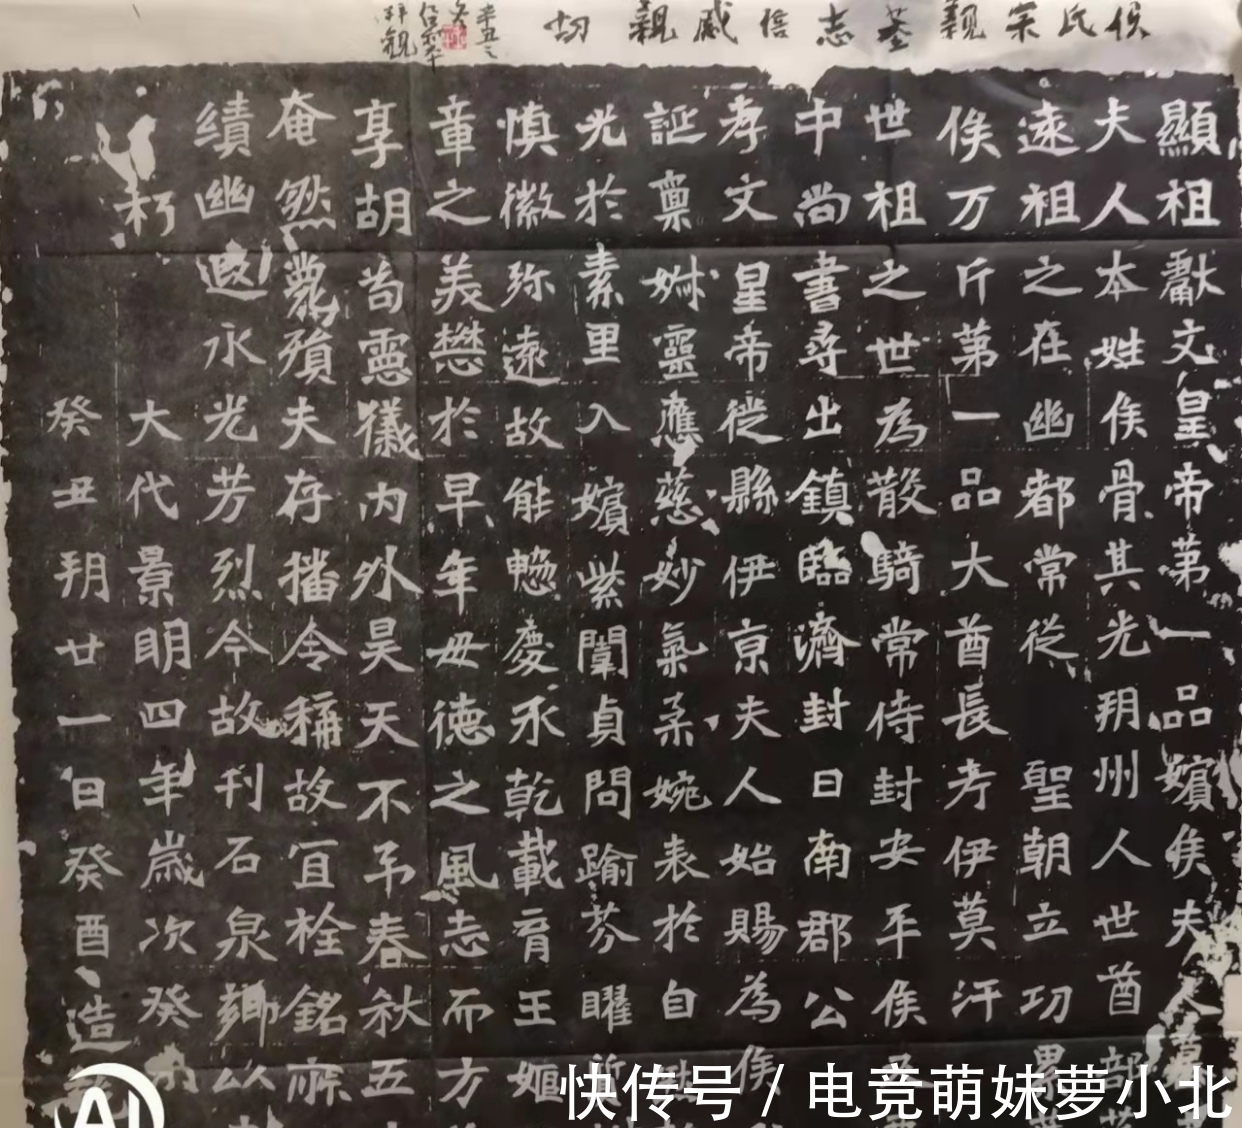 侯氏宋親墓志信戚親切
顯祖獻文皇帝第一品嬪侯夫人
夫人本姓侯骨其光朔州人世酋部
遠祖之在幽都常從聖朝立功
俟万斤第一品大酋長考伊莫汗
世祖之世為散騎常侍封安平侯
中尚書尋出鎮臨濟封日南郡公
孝文皇帝從縣伊京夫人始賜為侯
誕稟姉靈應慈妙氣柔婉表於自
光於素里入嬪紫闈貞問踰芬曜
慎徽弥遠故能愍慶承乾載育王姬
章之美懋於早年毋德之風志而方
享胡苟靈儀内外昊天不予春秋五
奄然薨殞夫存播令稱故宜栓銘
績幽遐永光芳烈今故刊石泉鄉以
朽 大代景明四年歲次癸
癸丑朔廿一日癸酉造
快传号 / 电竞萌妹萝小北